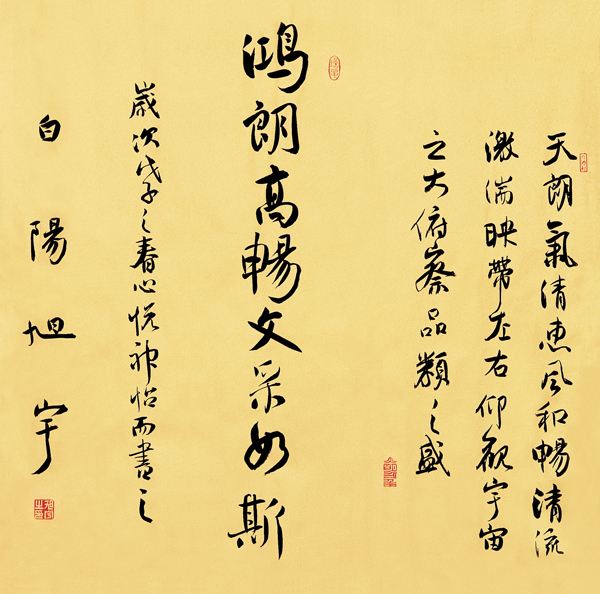 天朗氣清惠風和暢清流
激湍映帶左右仰觀宇宙
之大俯察品類之盛
鴻朗高暢文采如斯
歲次戊子之春心悅神怡而書之
白陽旭宇